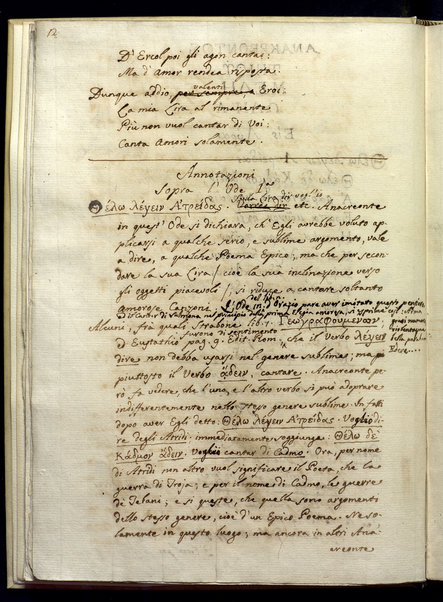 12.
D'Ercol poi gli agon cantai:
Ma d'Amor rendea risposta.
valenti
Dunque addio, per sempre, o Eroi:
La mia Lira al rimanente
Più non vuol cantar di Voi:
Canta Amori solamente.
Annotazioni
Sopra l'Ode I.a
Θέλω λέγειν Ἀτρείδας. Sulla Lira dir voglio
etc. Anacreonte
in quest'Ode si dichiara, ch'Egli avrebbe voluto ap-
plicarsi a qualche serio, e sublime argomento, vale
a dire, a qualche Poema Epico; ma che per secon-
dare la sua Lira / cioè la sua inclinazione verso
gli oggetti piacevoli / si riduce a cantare soltanto
amorose Canzoni. d'Orazio pare aver imitato questo
Alcuni, frà quali Strabone lib. 1. Γεωγραφουμένων,
furono di sentimento
ed Eustatio pag. 9. Edit. Rom., che il verbo λέγειν
dire non debba usarsi nel genere sublime; ma più
piuttosto il Verbo ᾄδειν, cantare. Anacreonte pe-
rò fa vedere, che l'uno, e l'altro verbo si può adoprare
indifferentemente nello stesso genere sublime. In fatti
dopo aver Egli detto: Θέλω λέγειν Ἀτρείδας: Voglio di-
re degli Atridi; immediatamente soggiunge: Θέλω δὲ
Κάδμον ᾄδειν. Voglio cantar di Cadmo. Ora, per nome
di Atridi non altro vuol significare il Poeta, che la
guerra di Troja; e per il nome di Cadmo, le guerre
de' Tebani; e si queste, che quella sono argomenti
dello stesso genere, cioè d'un Epico Poema. Ne so-
lamente in questo luogo; ma ancora in altri Ana-
creonte